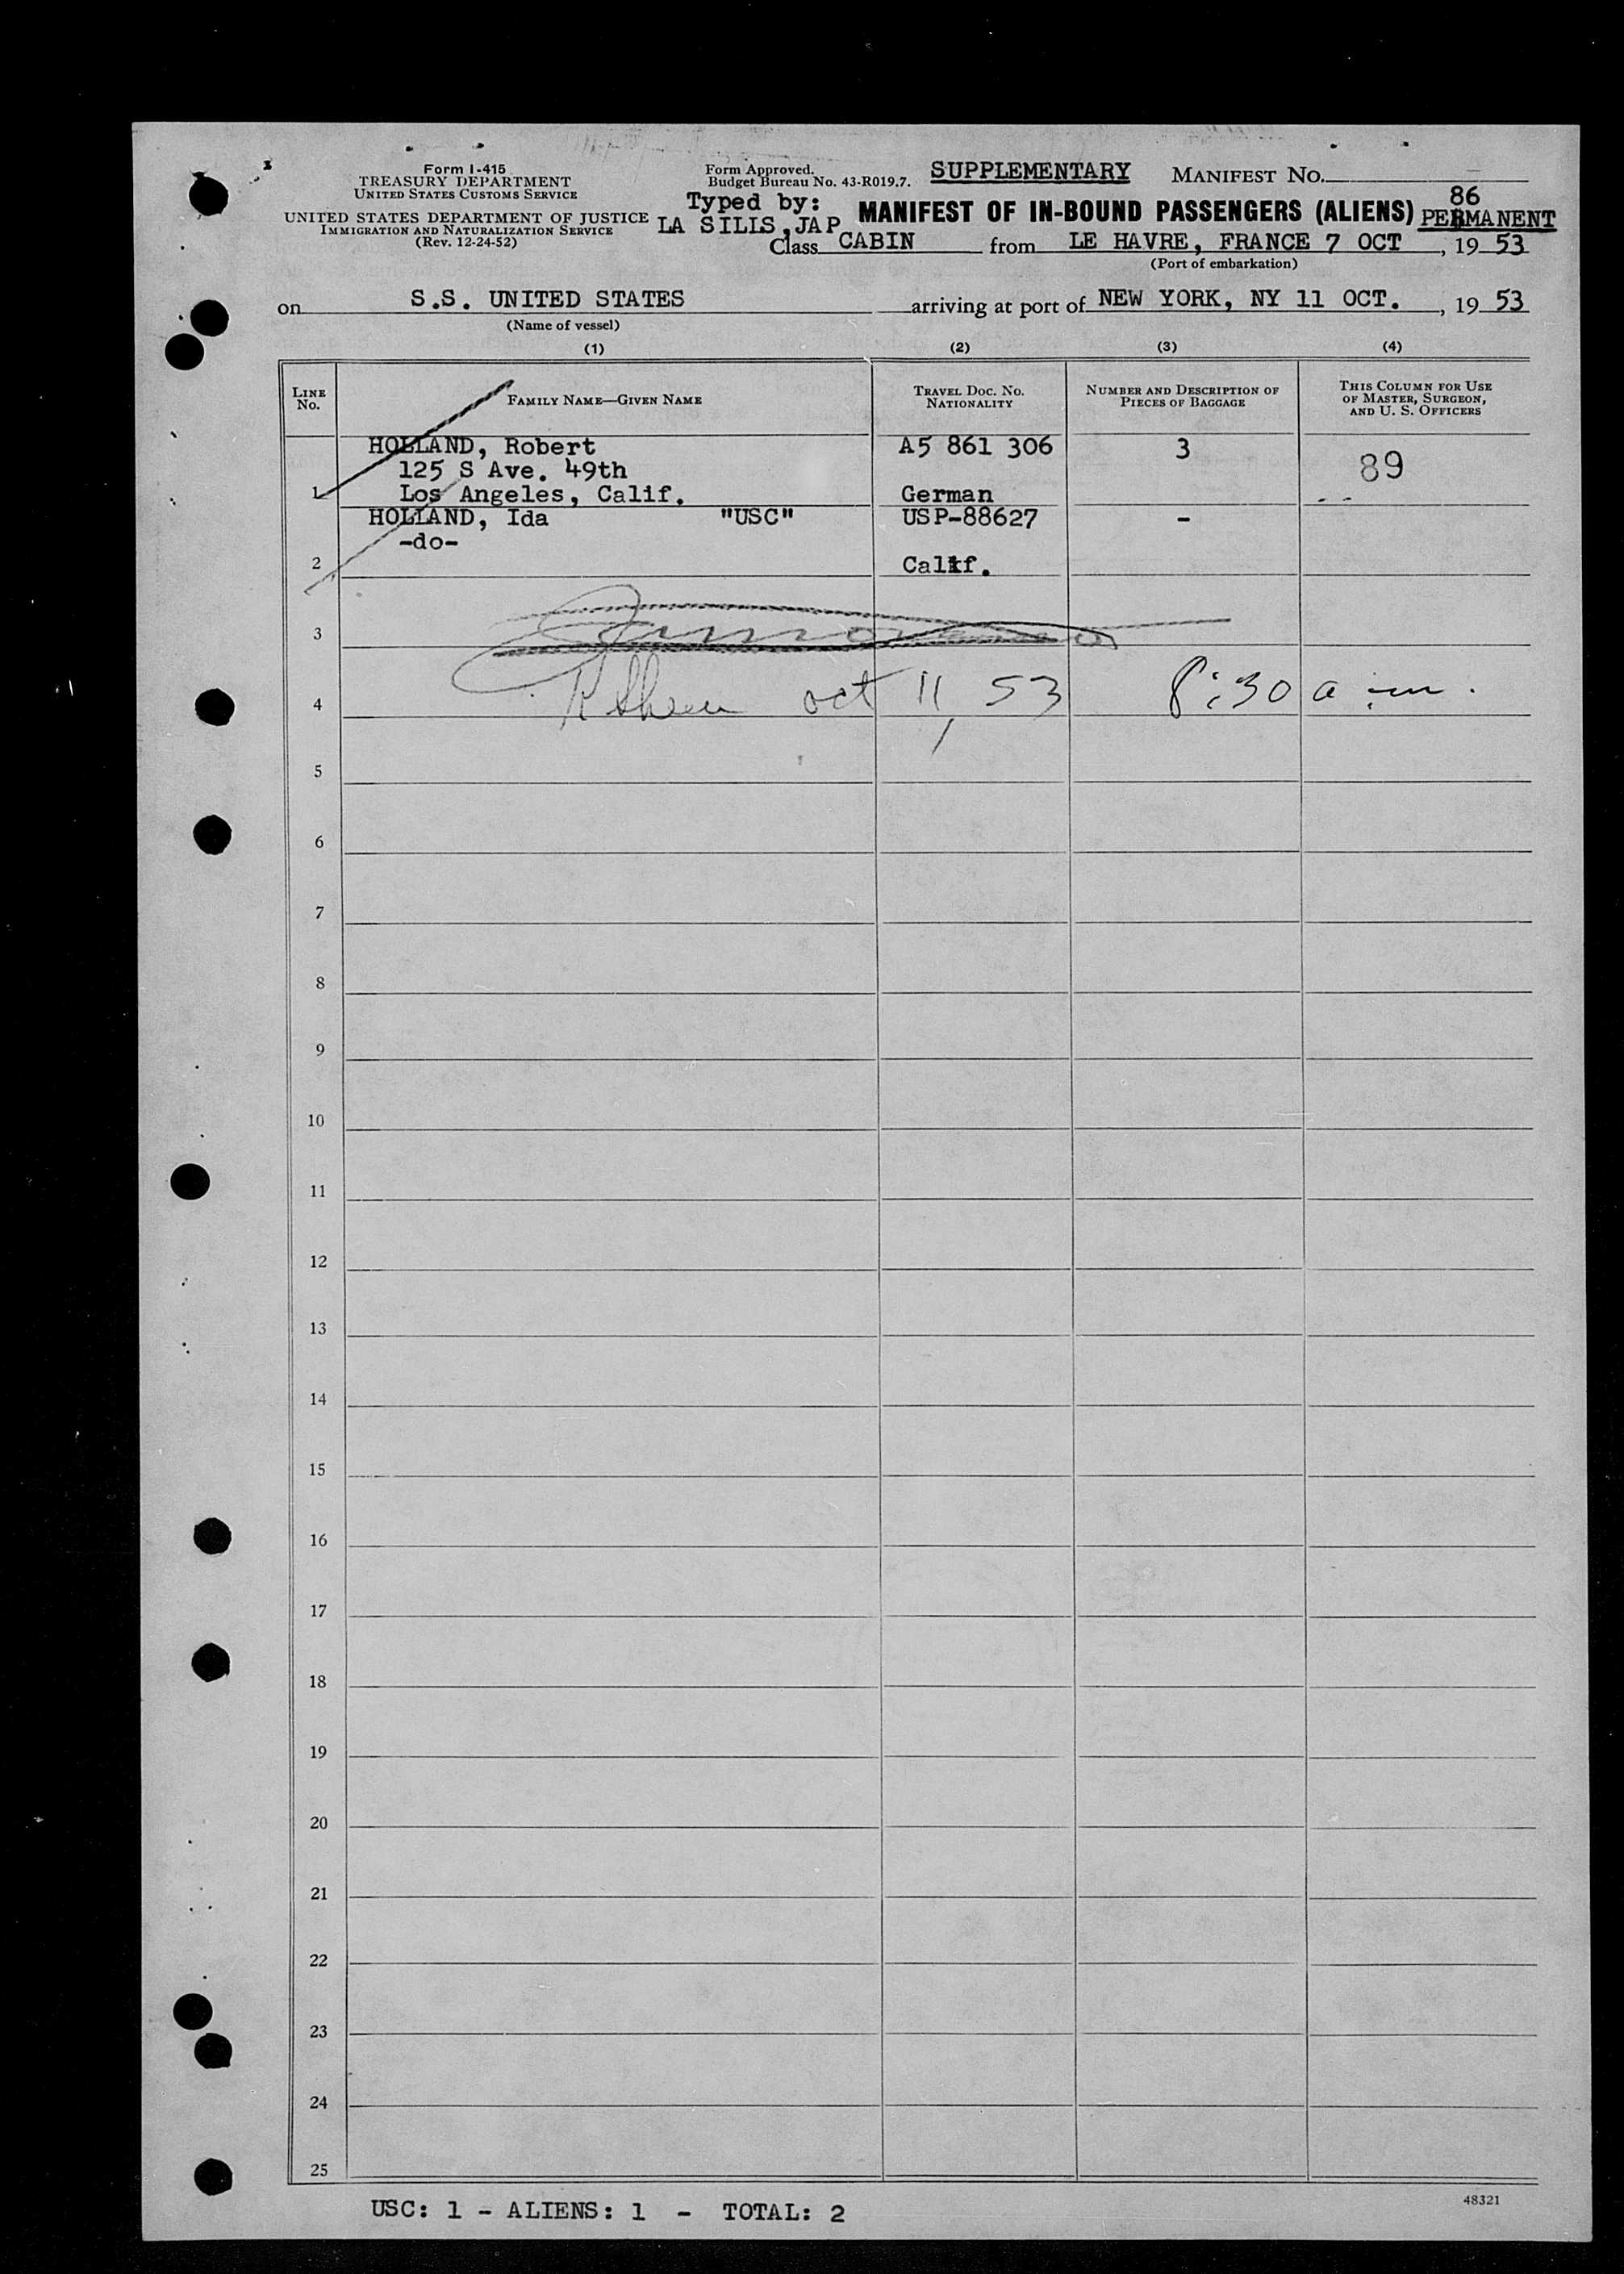 Form I-415
TREASURY DEPARTMENT
UNITED STATES CUSTOMS SERVICE
UNITED STATES DEPARTMENT OF JUSTICE
IMMIGRATION AND NATURALIZATION SERVICE
(Rev. 12-24-52)
Form Approved.
Budget Bureau No. 43-R019.7.
SUPPLEMENTARY
MANIFEST No.
86
Typed by:
LA SILLS,JAP
MANIFEST OF IN-BOUND PASSENGERS (ALIENS) PERMANENT
Class CABIN from LE HAVRE, FRANCE 7 OCT, 19 53
(Port of embarkation)
on S.S. UNITED STATES arriving at port of NEW YORK, NY 11 OCT., 19 53
(Name of vessel)
(1) (2) (3) (4)
LINE No. FAMILY NAME—GIVEN NAME TRAVEL DOC. No. NATIONALITY NUMBER AND DESCRIPTION OF PIECES OF BAGGAGE THIS COLUMN FOR USE OF MASTER, SURGEON, AND U. S. OFFICERS
HOLLAND, Robert A5 861 306 3 89
125 S Ave. 49th
1 Los Angeles, Calif. German
HOLLAND, Ida "USC" USP-88627 -
-do-
2 Calif.
3
4 oct 11, 53 8:30 a.m.
5
6
7
8
9
10
11
12
13
14
15
16
17
18
19
20
21
22
23
24
25
USC: 1 - ALIENS: 1 - TOTAL: 2
48321